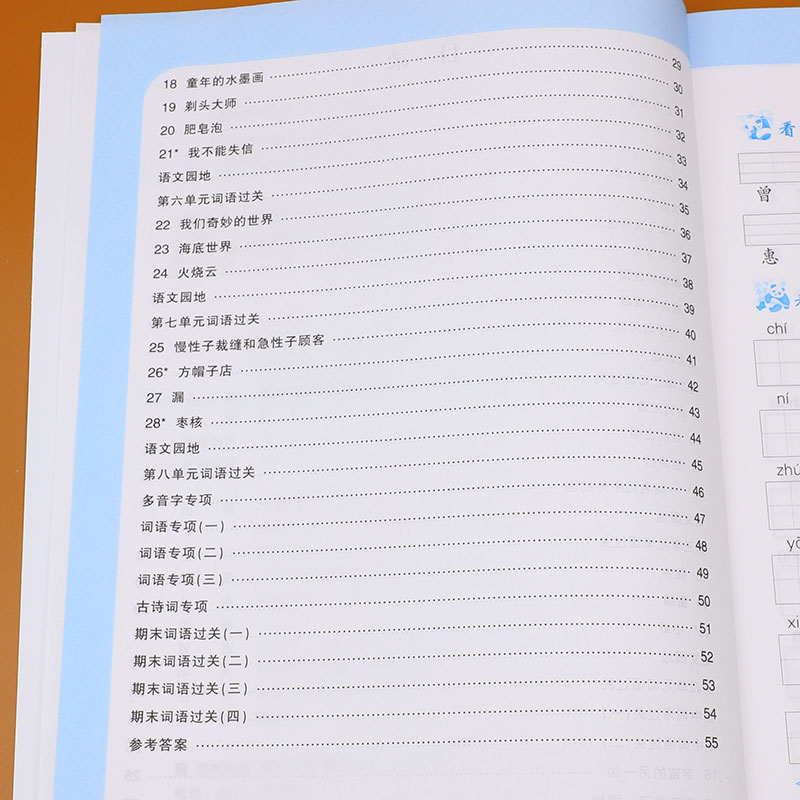 18 童年的水墨画 29
19 剃头大师 30
20 肥皂泡 31
21* 我不能失信 32
语文园地 33
第六单元词语过关 34
22 我们奇妙的世界 35
23 海底世界 36
24 火烧云 37
语文园地 38
第七单元词语过关 39
25 慢性子裁缝和急性子顾客 40
26* 方帽子店 41
27 漏 42
28* 枣核 43
语文园地 44
第八单元词语过关 45
多音字专项 46
词语专项(一) 47
词语专项(二) 48
词语专项(三) 49
古诗词专项 50
期末词语过关(一) 51
期末词语过关(二) 52
期末词语过关(三) 53
期末词语过关(四) 54
参考答案 55
看
曾
惠
chí
ní